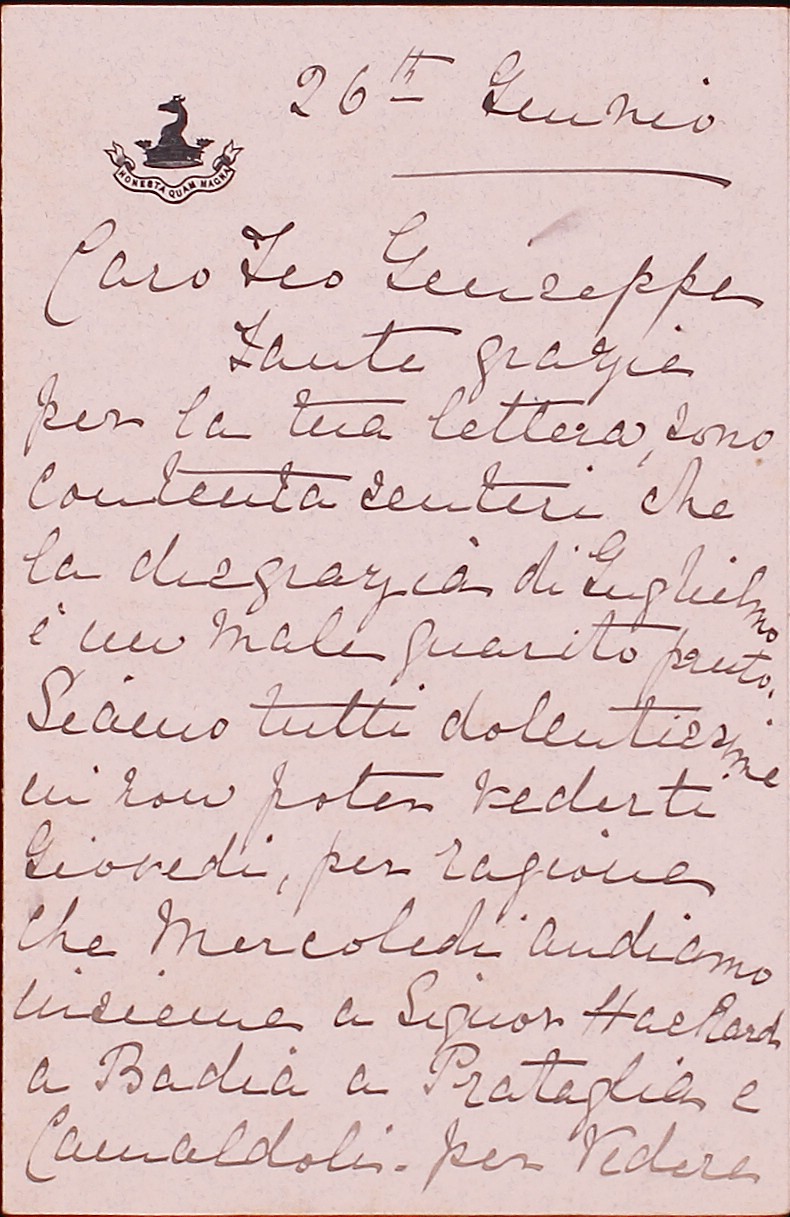 26th Giunio
HONESTA QUAM MAGNA
Caro Zeo Giuseppe
Tante grazie
per la tua lettera, sono
contenta senteri che
la disgrazia di Guglielmo
è un male guarito pruto.
Siamo tutti dolentissime
in non poter vederti
Giovedi, per ragione
che Mercoledi andiamo
insieme a Signor Hackard
a Badia a Prataglia e
Camaldoli. per vedere